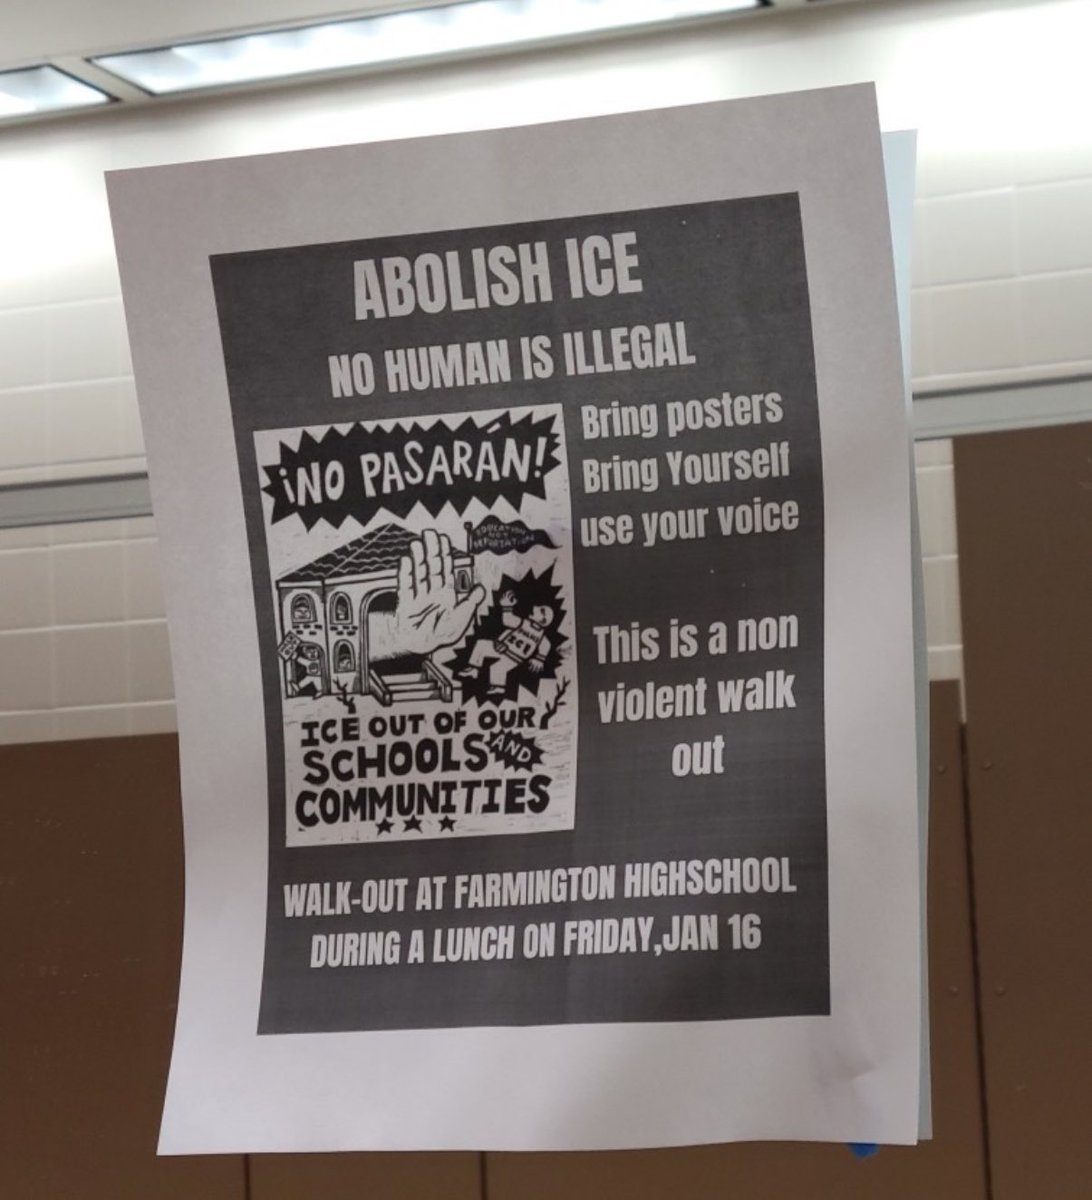 ABOLISH ICE
NO HUMAN IS ILLEGAL
¡NO PASARÁN!
EDUCATION
NOT
DEPORTATION
ICE
ICE OUT OF OUR
SCHOOLS AND
COMMUNITIES
Bring posters
Bring Yourself
use your voice
This is a non
violent walk
out
WALK-OUT AT FARMINGTON HIGHSCHOOL
DURING A LUNCH ON FRIDAY,JAN 16